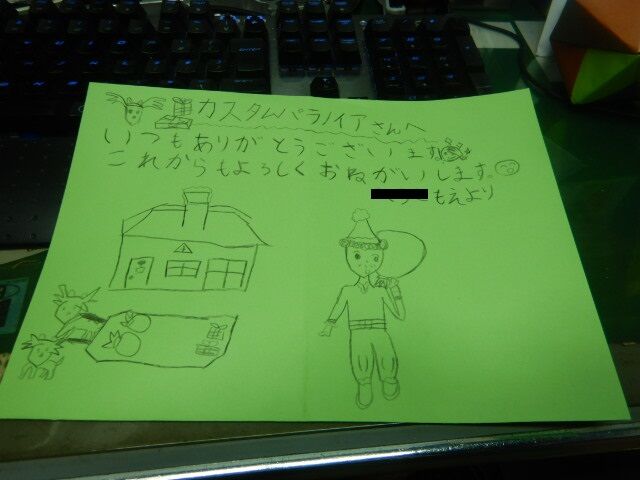 カスタムパラノイアさんへ
いつもありがとうございます。
これからもよろしくおねがいします。
もえより